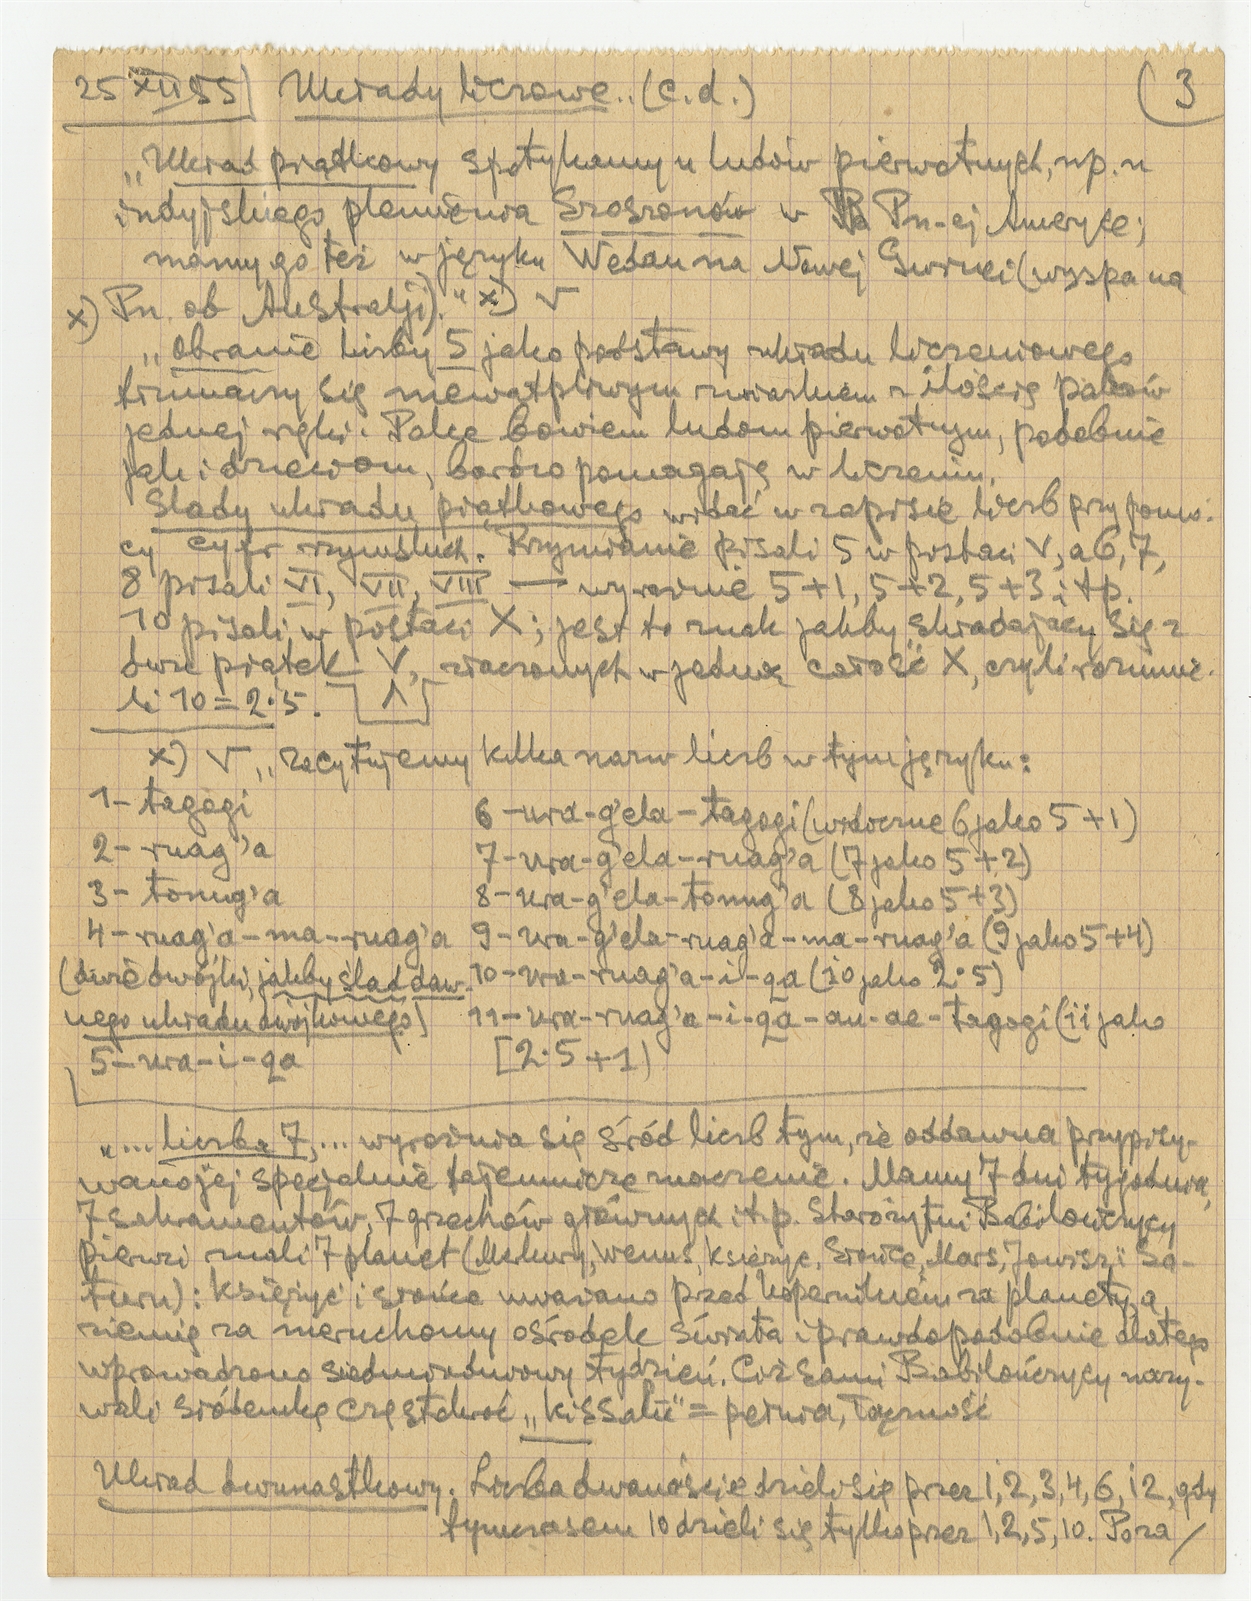 25 XII 55) Układy liczowe.. (c.d.) (3
„Układ piątkowy spotykamy u ludów pierwotnych, np. u
indyjskiego plemienia Szoszonów w Pn-ej Ameryce;
mamy go też w języku Wedau na Nowej Gwinei (wyspa na
x) Pn. ob Australji)." x) √
„Obranie liczby 5 jako podstawy układu liczeniowego
tłumaczy się niewątpliwym związkiem z ilością palców
jednej ręki. Palce bowiem ludom pierwotnym, podobnie
jak i dzieciom, bardzo pomagają w liczeniu.
Ślady układu piątkowego widać w zapisie liczb przy pomo-
cy cyfr rzymskich. Rzymianie pisali 5 w postaci V, a 6, 7,
8 pisali VI, VII, VIII — wyraźnie 5+1, 5+2, 5+3 i t.p.
10 pisali w postaci X; jest to znak jakby składający się z
dwu piątek V, złączonych w jedną całość X, czyli rozumie-
li 10 = 2·5. [Λ]
x) √ „Zacytujemy kilka nazw liczb w tym języku:
1- tagogi
2- ruag'a
3- tonug'a
4- ruag'a-ma-ruag'a
(dwie dwójki, jakby ślad daw-
nego układu dwójkowego)
5- ura-i-qa
6-ura-g'ela-tagogi (widoczne 6 jako 5+1)
7-ura-g'ela-ruag'a (7 jako 5+2)
8-ura-g'ela-tonug'a (8 jako 5+3)
9-ura-g'ela-ruag'a-ma-ruag'a (9 jako 5+4)
10-ura-ruag'a-i-qa (10 jako 2·5)
11-ura-ruag'a-i-qa-au-ae-tagogi (11 jako
[2·5+1)
„... liczba 7,... wyróżnia się śród liczb tym, że oddawna przypisy-
wano jej specjalnie tajemnicze znaczenie. Mamy 7 dni tygodnia,
7 sakramentów, 7 grzechów głównych i t.p. Starożytni Babilończycy
pierwsi znali 7 planet (Merkury, Wenus, Księżyc, Słońce, Mars, Jowisz i Sa-
turn): Księżyc i słońce uważano przed Kopernikiem za planety, a
ziemię za nieruchomy ośrodek świata i prawdopodobnie dlatego
wprowadzono siedmiodniowy tydzień. Ciż sami Babilończycy nazy-
wali siódemkę częstokroć „kissatu" = pełnia, łączność
Układ dwunastkowy. Liczba dwanaście dzieli się przez 1, 2, 3, 4, 6, 12, gdy
tymczasem 10 dzieli się tylko przez 1, 2, 5, 10. Poza/